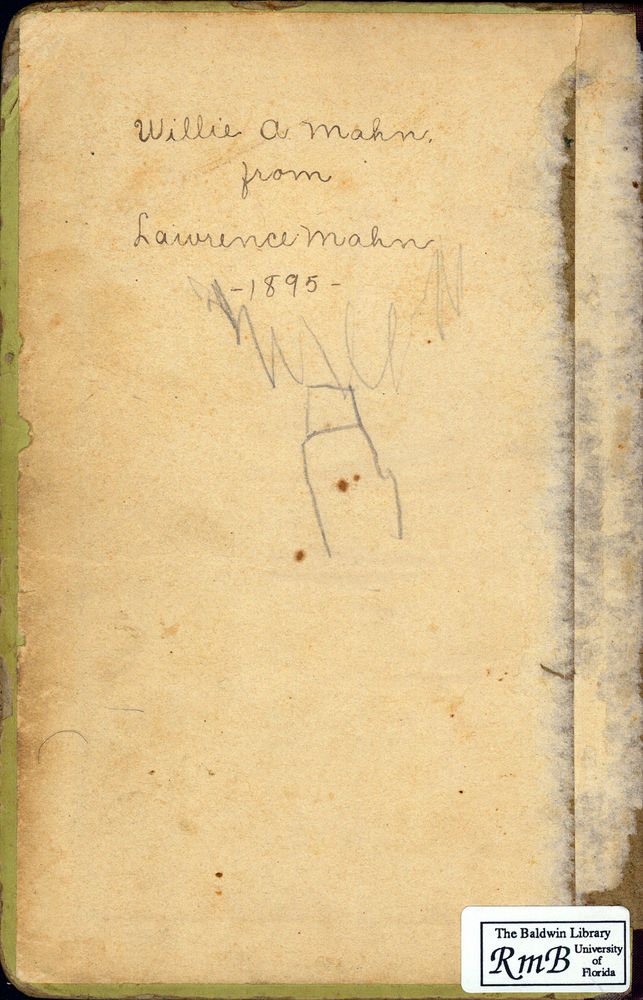 Willie A. Mahn,
from
Lawrence Mahn
-1895-
The Baldwin Library
RmB University
of
Florida